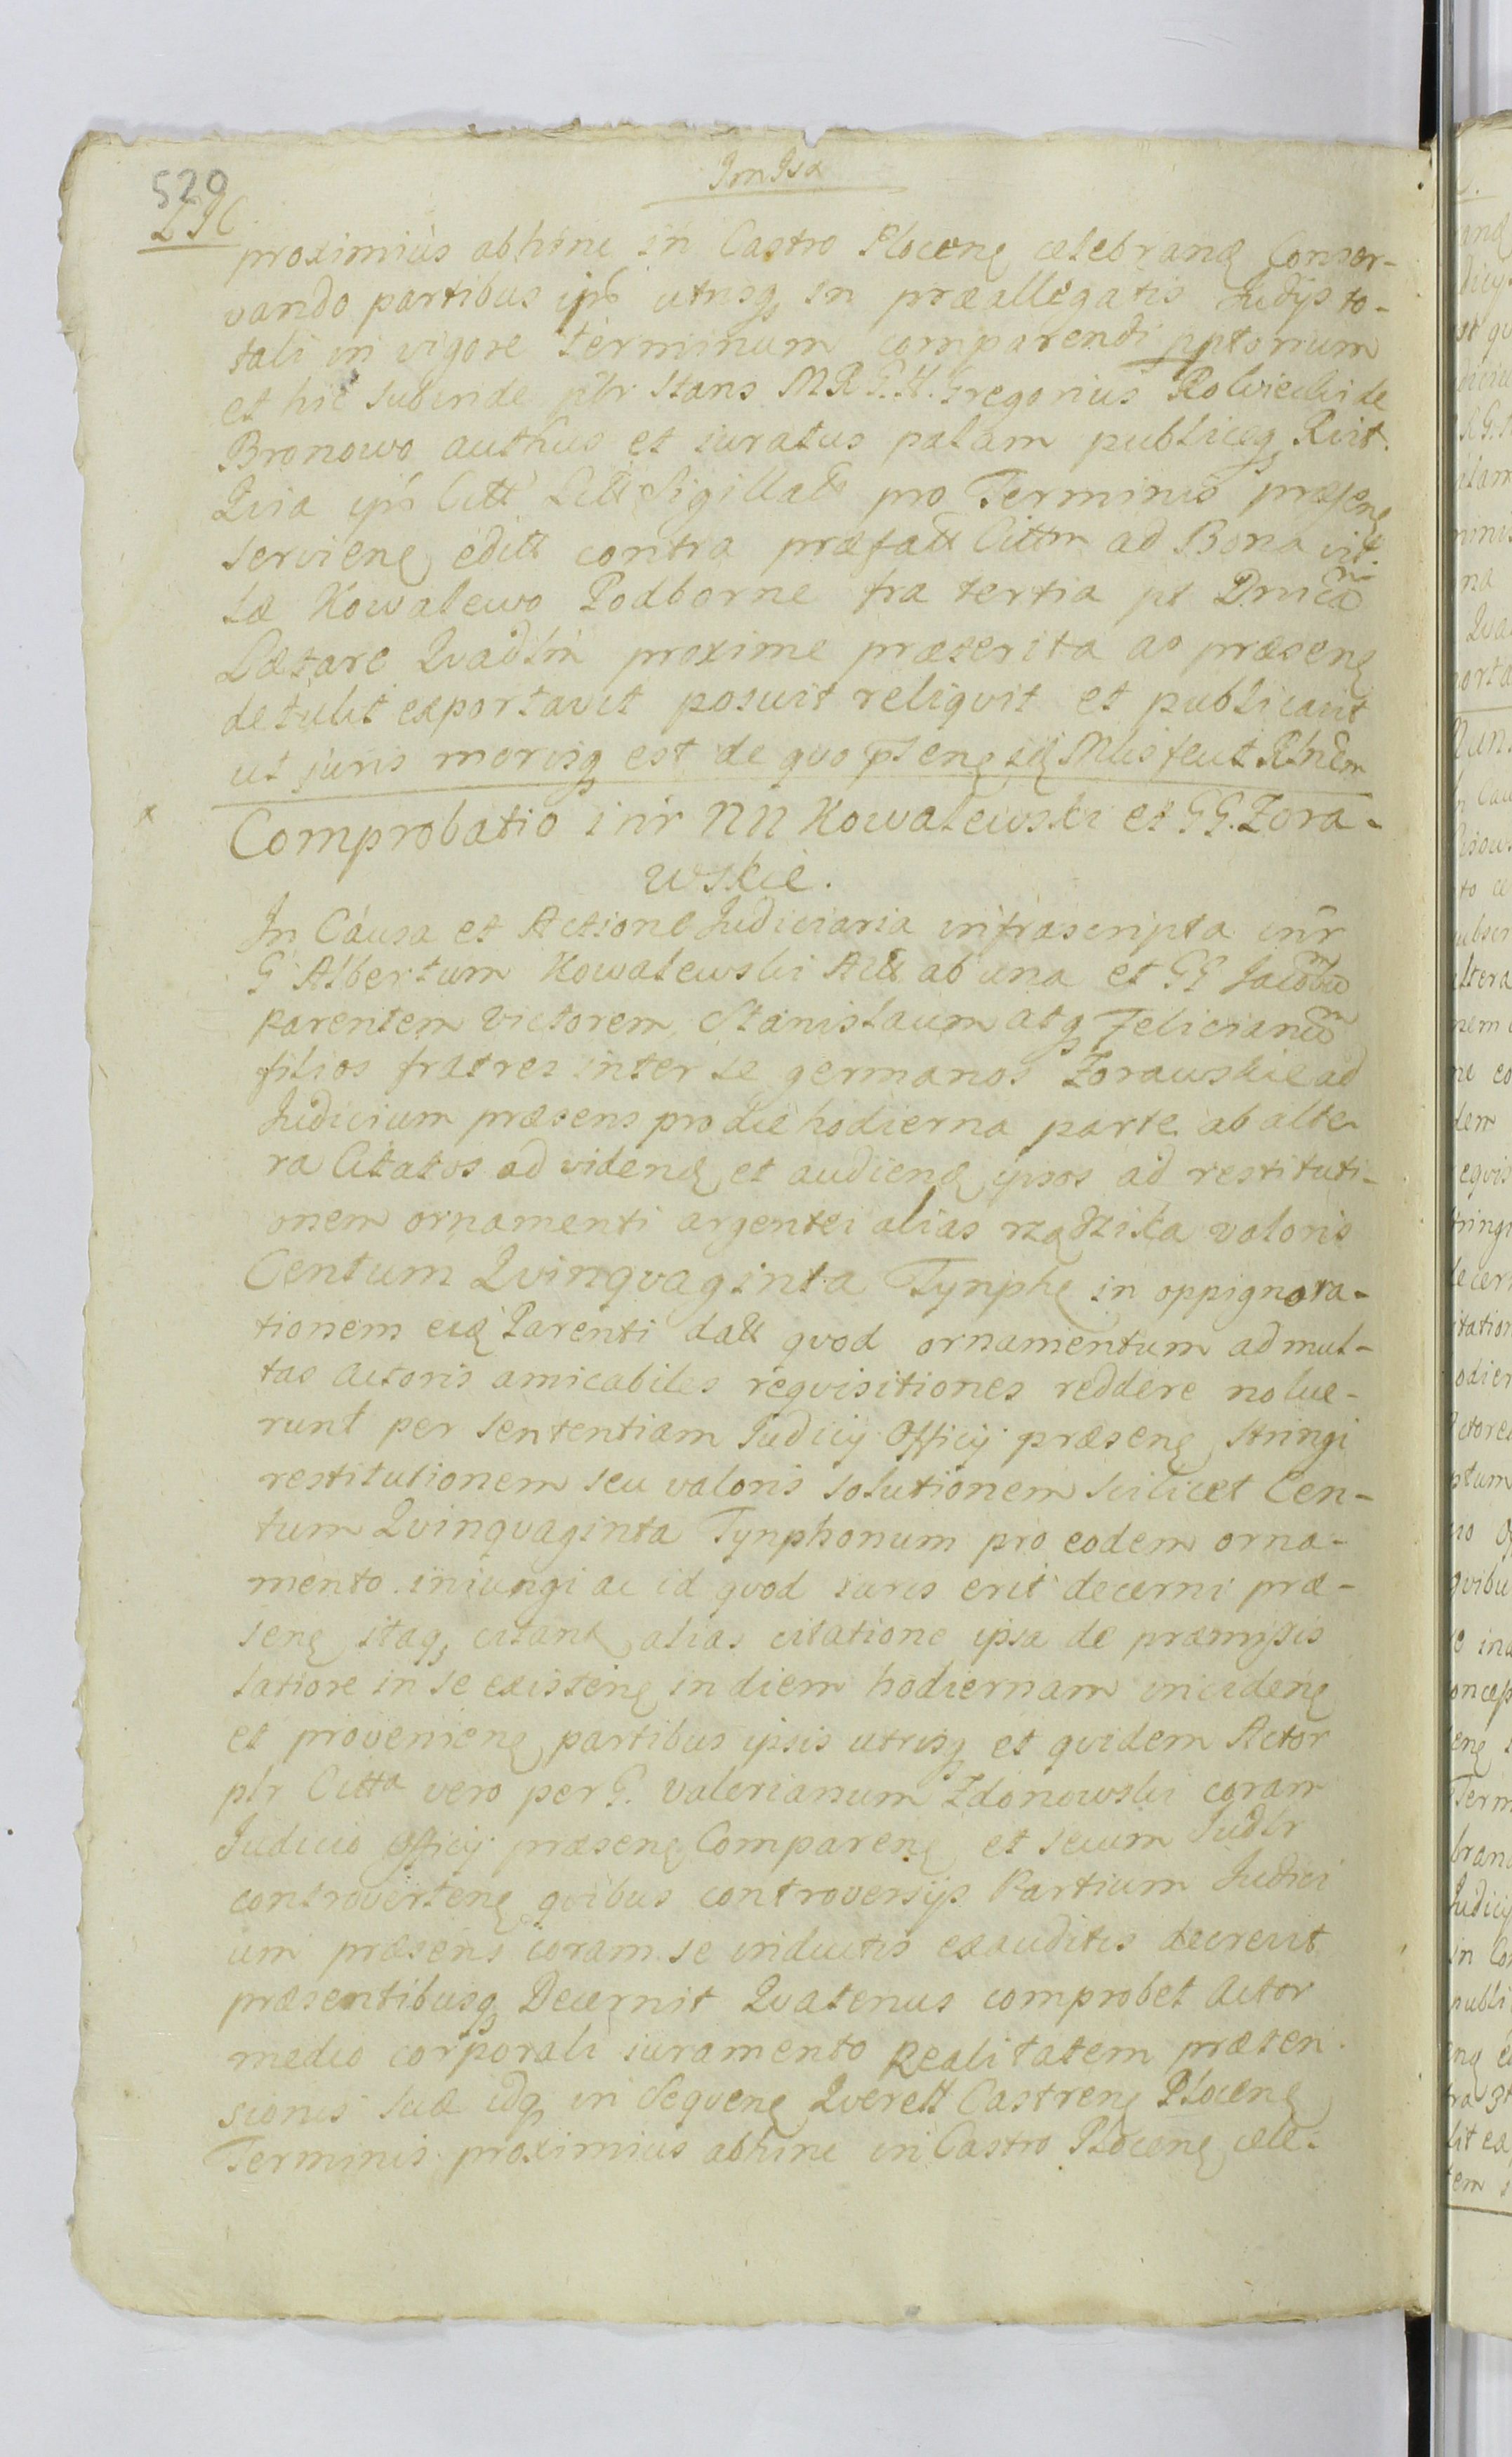 520
proximius abhinc in Castro Plocenę celebranđ Conser-
vando partibus ipś utrisq in præallegatis Judijs to-
tali in vigore terminum comparendi pptorium
et hic subinde pltr Stans MRGH. Gregorius Rolviecki de
Bronowo authus et iuratus palam publiceq Rvit.
Qvia ipś Citt Litt Sigillatt pro Terminis præsenę
servienę editt contra præfatt Cittm ad Bona vil-
læ Kowalewo Podborne fra tertia pt Dnicam
Lætare Qvadlm proxime præterita ao præsenę
detulit exportavit posuit reliqvit et publicavit
ut juris morisq est de quo
Comprobatio intr NN Kowalewski et GG. Zora-
wskie.
In Causa et Actione Judiciaria infrascripta intr
G Albertum Kowalewski Actt ab una et GG Jacobum
Parentem Victorem, Stanislaum atq Felicianum
filios fratres inter se germanos Zorawskie ad
Judicium præsens pro die hodierna parte ab alte-
ra Citatos ad videnđ et audienđ ipsos ad restituti-
onem ornamenti argentei alias rządzika valoris
Centum Qvinqvaginta Tynphę in oppignora-
tionem Parenti datt qvod ornamentum ad mul-
tas Actoris amicabiles reqvisitiones reddere nolue-
runt per sententiam Judicij Officij præsenę stringi
restitutionem seu valoris solutionem scilicet Cen-
tum Qvinqvaginta Tynphonum pro eodem orna-
mento iniungi ac id qvod iuris erit decerni præ-
senę itaq citanę alias citatione ipsa de præmissis
latiore in se existenę in diem hodiernam incidenę
et provenienę partibus ipsis utrisq et qvidem Actor
pltr Citta vero per G. Valerianum Zdonowski coram
Judicio Officij præsenę Comparenę et secum Judltr
controvertenę qvibus controversijs Partium Judici
um præsens coram se inductis exauditis decrevit
præsentibusq Decernit Qvatenus comprobet Actor
medio corporali iuramento Realitatem præten-
sionis suæ idq in Seqvenę Qverell Castrenę Plocenę
Terminis proximius abhinc in Castro Plocenę cele-